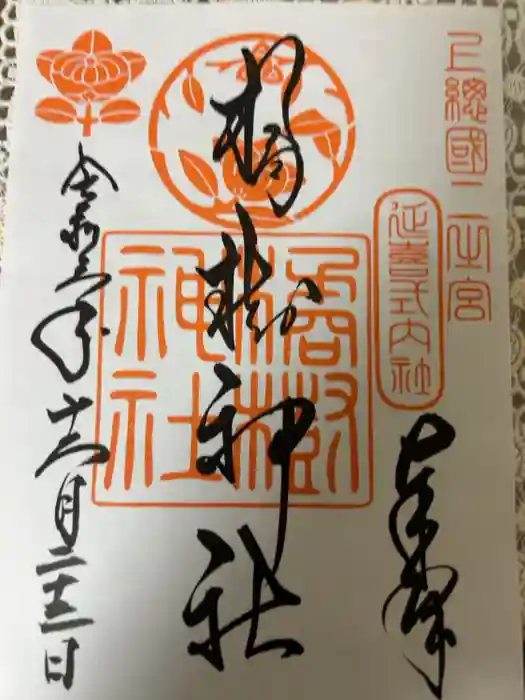 上總國二之宮
延喜式内社
奉拝
橘樹神社
橘樹神社
令和三年十二月二十三日